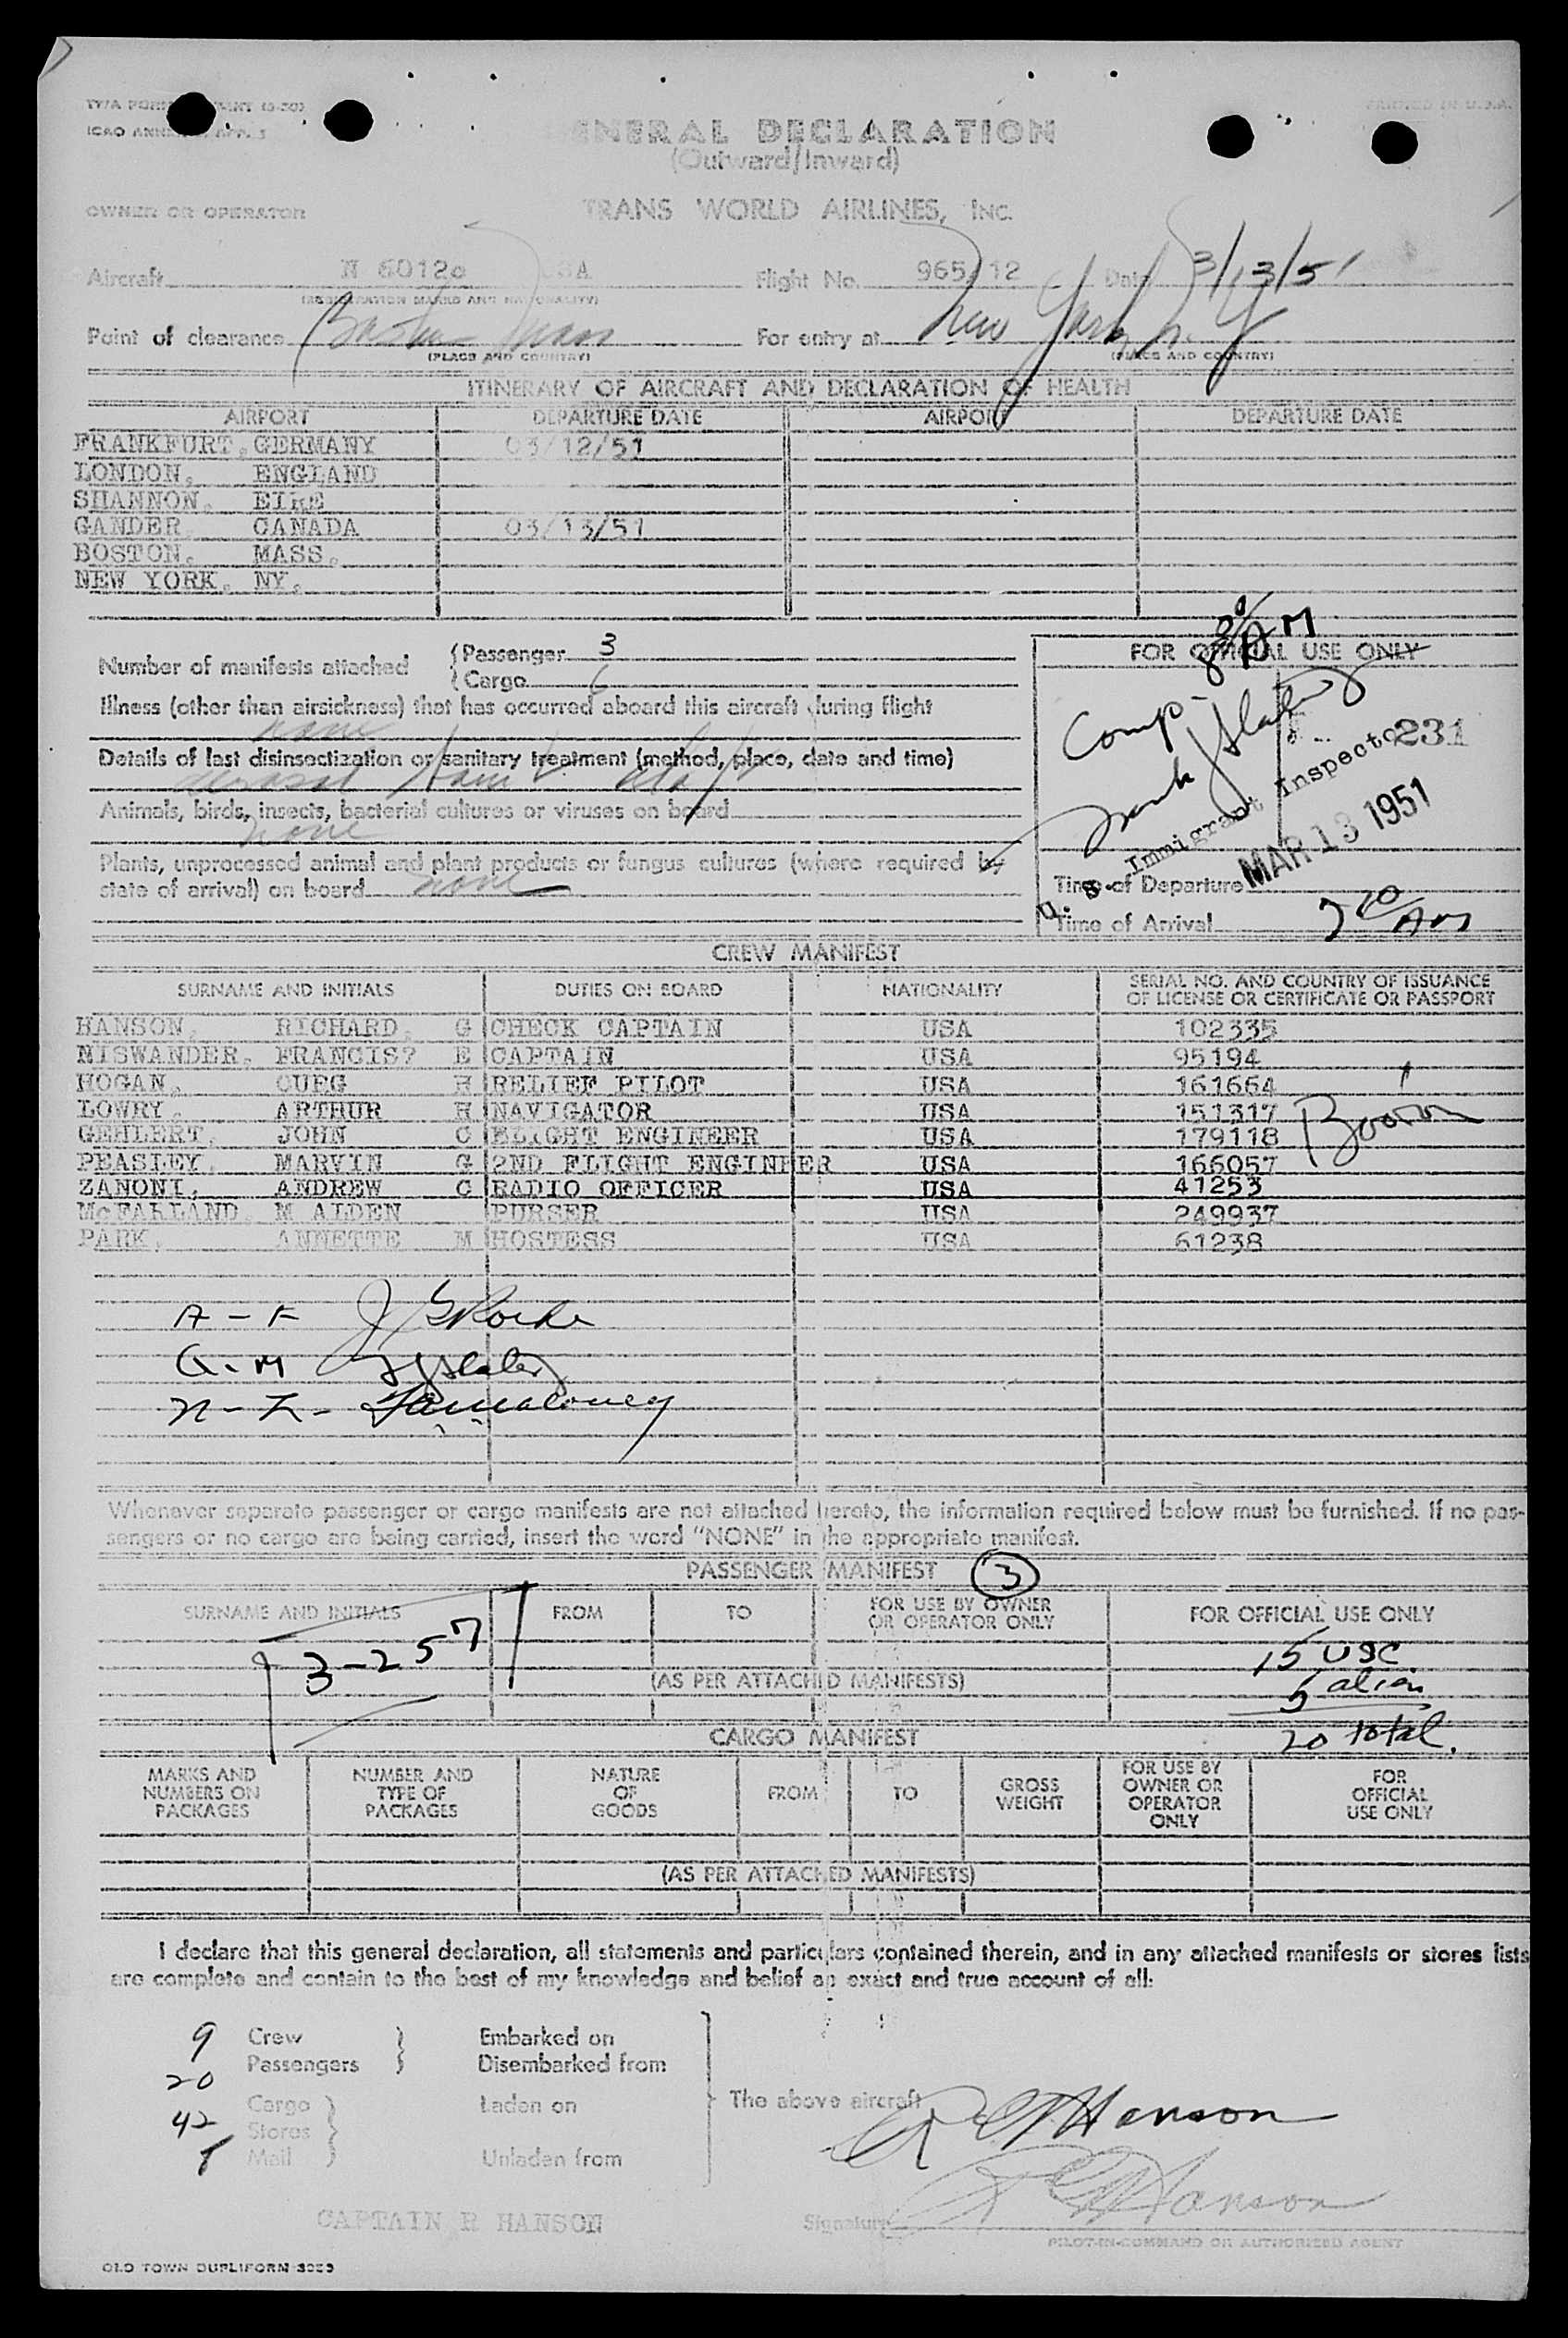 ICAO ANNEX
PRINTED IN U.S.A.
GENERAL DECLARATION
(Outward/Inward)
OWNER OR OPERATOR TRANS WORLD AIRLINES, INC.
Aircraft N 6012c USA Flight No. 965/12 Date 3/13/51
(REGISTRATION MARKS AND NATIONALITY)
Point of clearance Boston Mass For entry at New York N.Y
(PLACE AND COUNTRY) (PLACE AND COUNTRY)
ITINERARY OF AIRCRAFT AND DECLARATION OF HEALTH
AIRPORT DEPARTURE DATE AIRPORT DEPARTURE DATE
FRANKFURT, GERMANY 03/12/51
LONDON, ENGLAND
SHANNON, EIRE
GANDER CANADA 03/13/51
BOSTON, MASS.
NEW YORK, NY.
Number of manifests attached
Passenger 3
Cargo
Illness (other than airsickness) that has occurred aboard this aircraft during flight
none
Details of last disinsectization or sanitary treatment (method, place, date and time)
Animals, birds, insects, bacterial cultures or viruses on board
none
Plants, unprocessed animal and plant products or fungus cultures (where required by
state of arrival) on board none
AM
FOR OFFICIAL USE ONLY
Comp-
231
Frank J Slater
U. S. Immigrant Inspector
MAR 13 1951
Time of Departure
Time of Arrival 7 20 AM
CREW MANIFEST
SURNAME AND INITIALS DUTIES ON BOARD NATIONALITY SERIAL NO. AND COUNTRY OF ISSUANCE
OF LICENSE OR CERTIFICATE OR PASSPORT
HANSON, RICHARD, G CHECK CAPTAIN USA 102335
NISWANDER, FRANCIS? E CAPTAIN USA 95194
HOGAN, OUEG H RELIEF PILOT USA 161664
LOWRY, ARTHUR H NAVIGATOR USA 151317
GEHLERT, JOHN C FLIGHT ENGINEER USA 179118
PEASLEY, MARVIN G 2ND FLIGHT ENGINEER USA 166057
ZANONI, ANDREW C RADIO OFFICER USA 41253
McFARLAND, M ALDEN PURSER USA 249937
PARK, ANNETTE M HOSTESS USA 61238
A - F
G - M
N - Z -
Whenever separate passenger or cargo manifests are not attached hereto, the information required below must be furnished. If no pas-
sengers or no cargo are being carried, insert the word "NONE" in the appropriate manifest.
PASSENGER MANIFEST 3
SURNAME AND INITIALS FROM TO FOR USE BY OWNER
OR OPERATOR ONLY FOR OFFICIAL USE ONLY
3-257
15 USC
5 alien
(AS PER ATTACHED MANIFESTS)
20 total.
CARGO MANIFEST
MARKS AND
NUMBERS ON
PACKAGES
NUMBER AND
TYPE OF
PACKAGES
NATURE
OF
GOODS
FROM
TO
GROSS
WEIGHT
FOR USE BY
OWNER OR
OPERATOR
ONLY
FOR
OFFICIAL
USE ONLY
(AS PER ATTACHED MANIFESTS)
I declare that this general declaration, all statements and particulars contained therein, and in any attached manifests or stores lists
are complete and contain to the best of my knowledge and belief an exact and true account of all:
9 Crew Embarked on
20 Passengers Disembarked from
Cargo Laden on The above aircraft
42 Stores
Mail Unladen from
R G Hanson
R G Hanson
CAPTAIN R HANSON Signature
PILOT-IN-COMMAND OR AUTHORIZED AGENT
OLD TOWN DUPLIFORM 3053